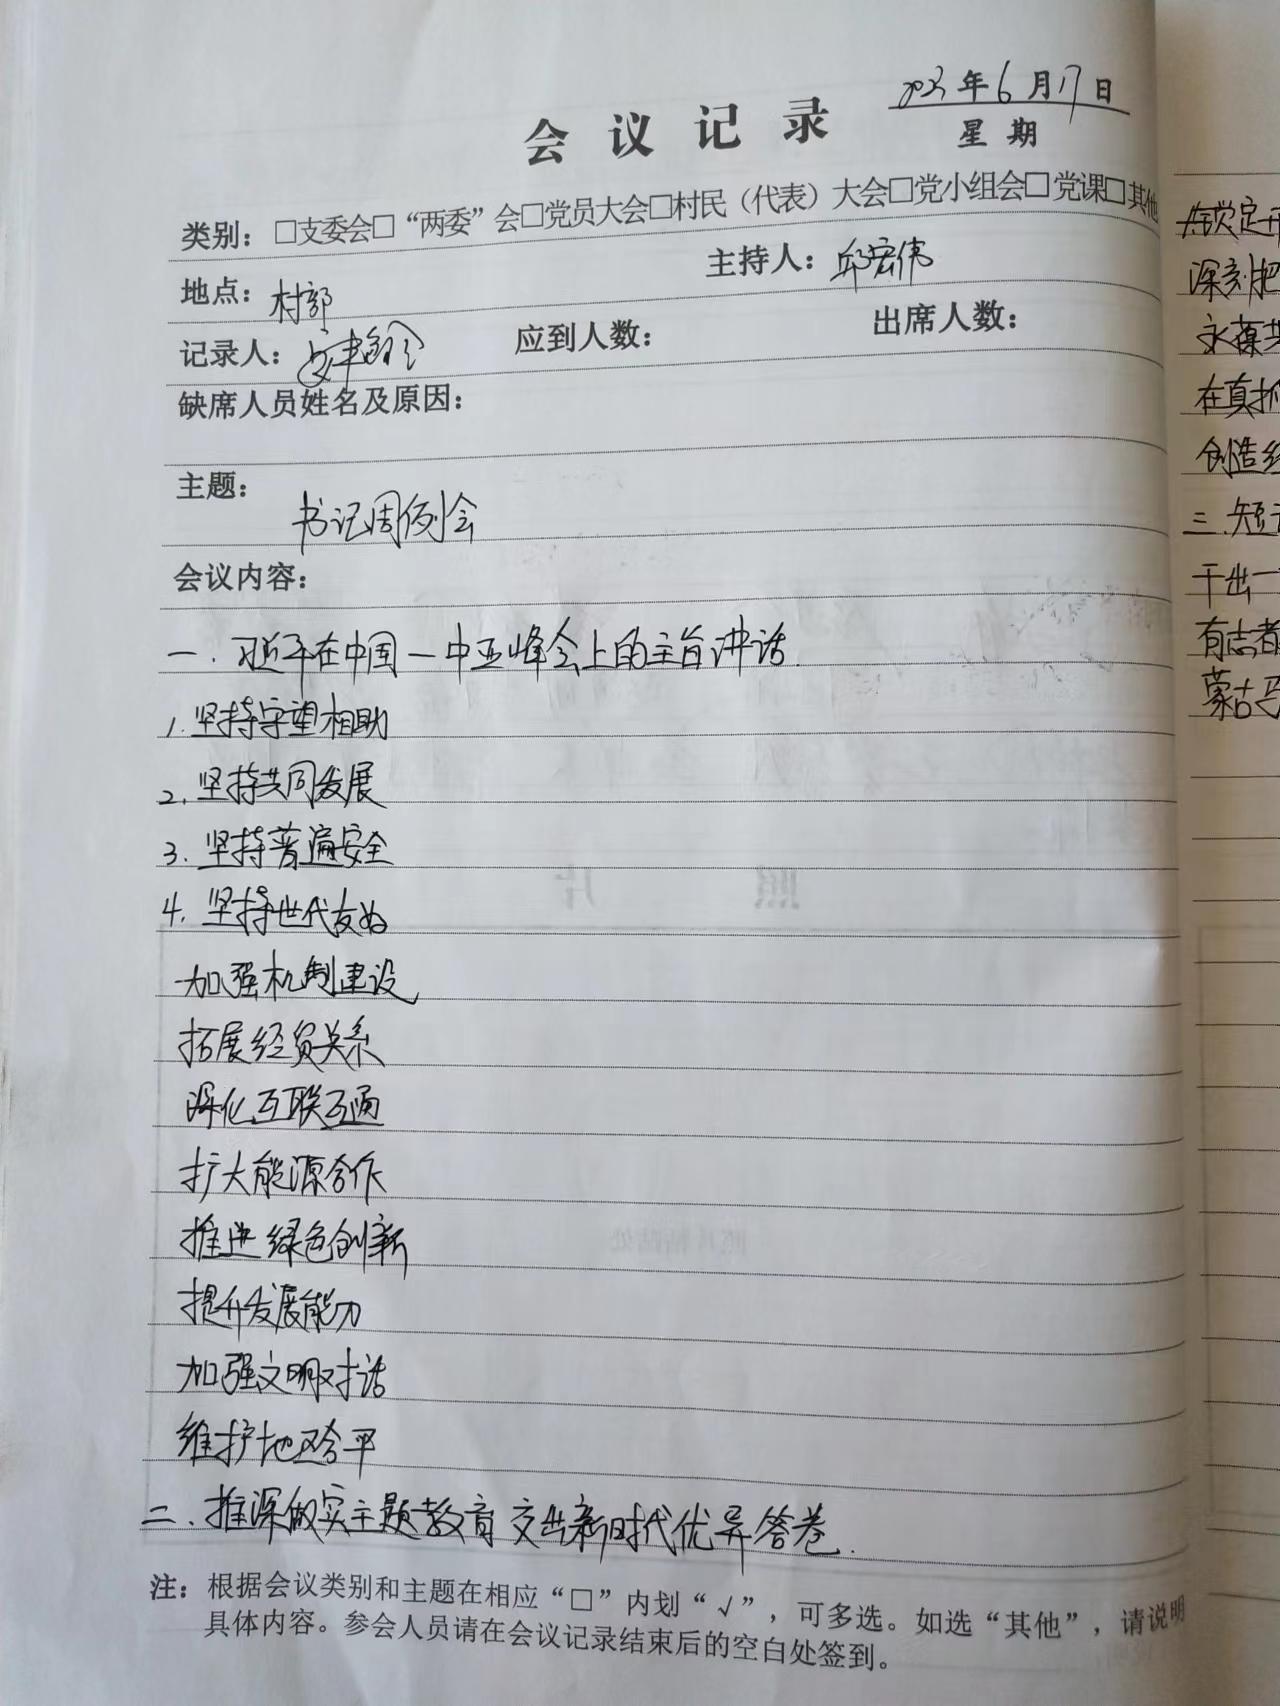 2023年6月17日
会议记录
星期
类别：□支委会□“两委”会□党员大会□村民（代表）大会□党小组会□党课□其他
地点：村部 主持人：邱宏伟
记录人： 应到人数： 出席人数：
缺席人员姓名及原因：
主题：
书记周例会
会议内容：
一.习近平在中国一中亚峰会上的主旨讲话.
1.坚持守望相助
2.坚持共同发展
3.坚持普遍安全
4.坚持世代友好
加强机制建设
拓展经贸关系
深化互联互通
扩大能源合作
推进绿色创新
提升发展能力
加强文明对话
维护地区和平
二.推深做实主题教育 交出新时代优异答卷.
注：根据会议类别和主题在相应“□”内划“√”，可多选。如选“其他”，请说明
具体内容。参会人员请在会议记录结束后的空白处签到。
锁定
深刻把
永葆共
在真抓
创造
三.短
干出一
有志者
蒙古马
照片